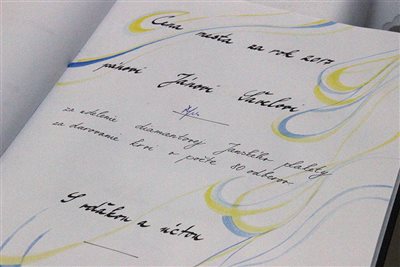 Cena mesta za rok 2017
pánovi Jánovi
za udelenie diamantovej Janského plakety
za darovanie krvi v počte 80 odberov
S vďakou a úctou